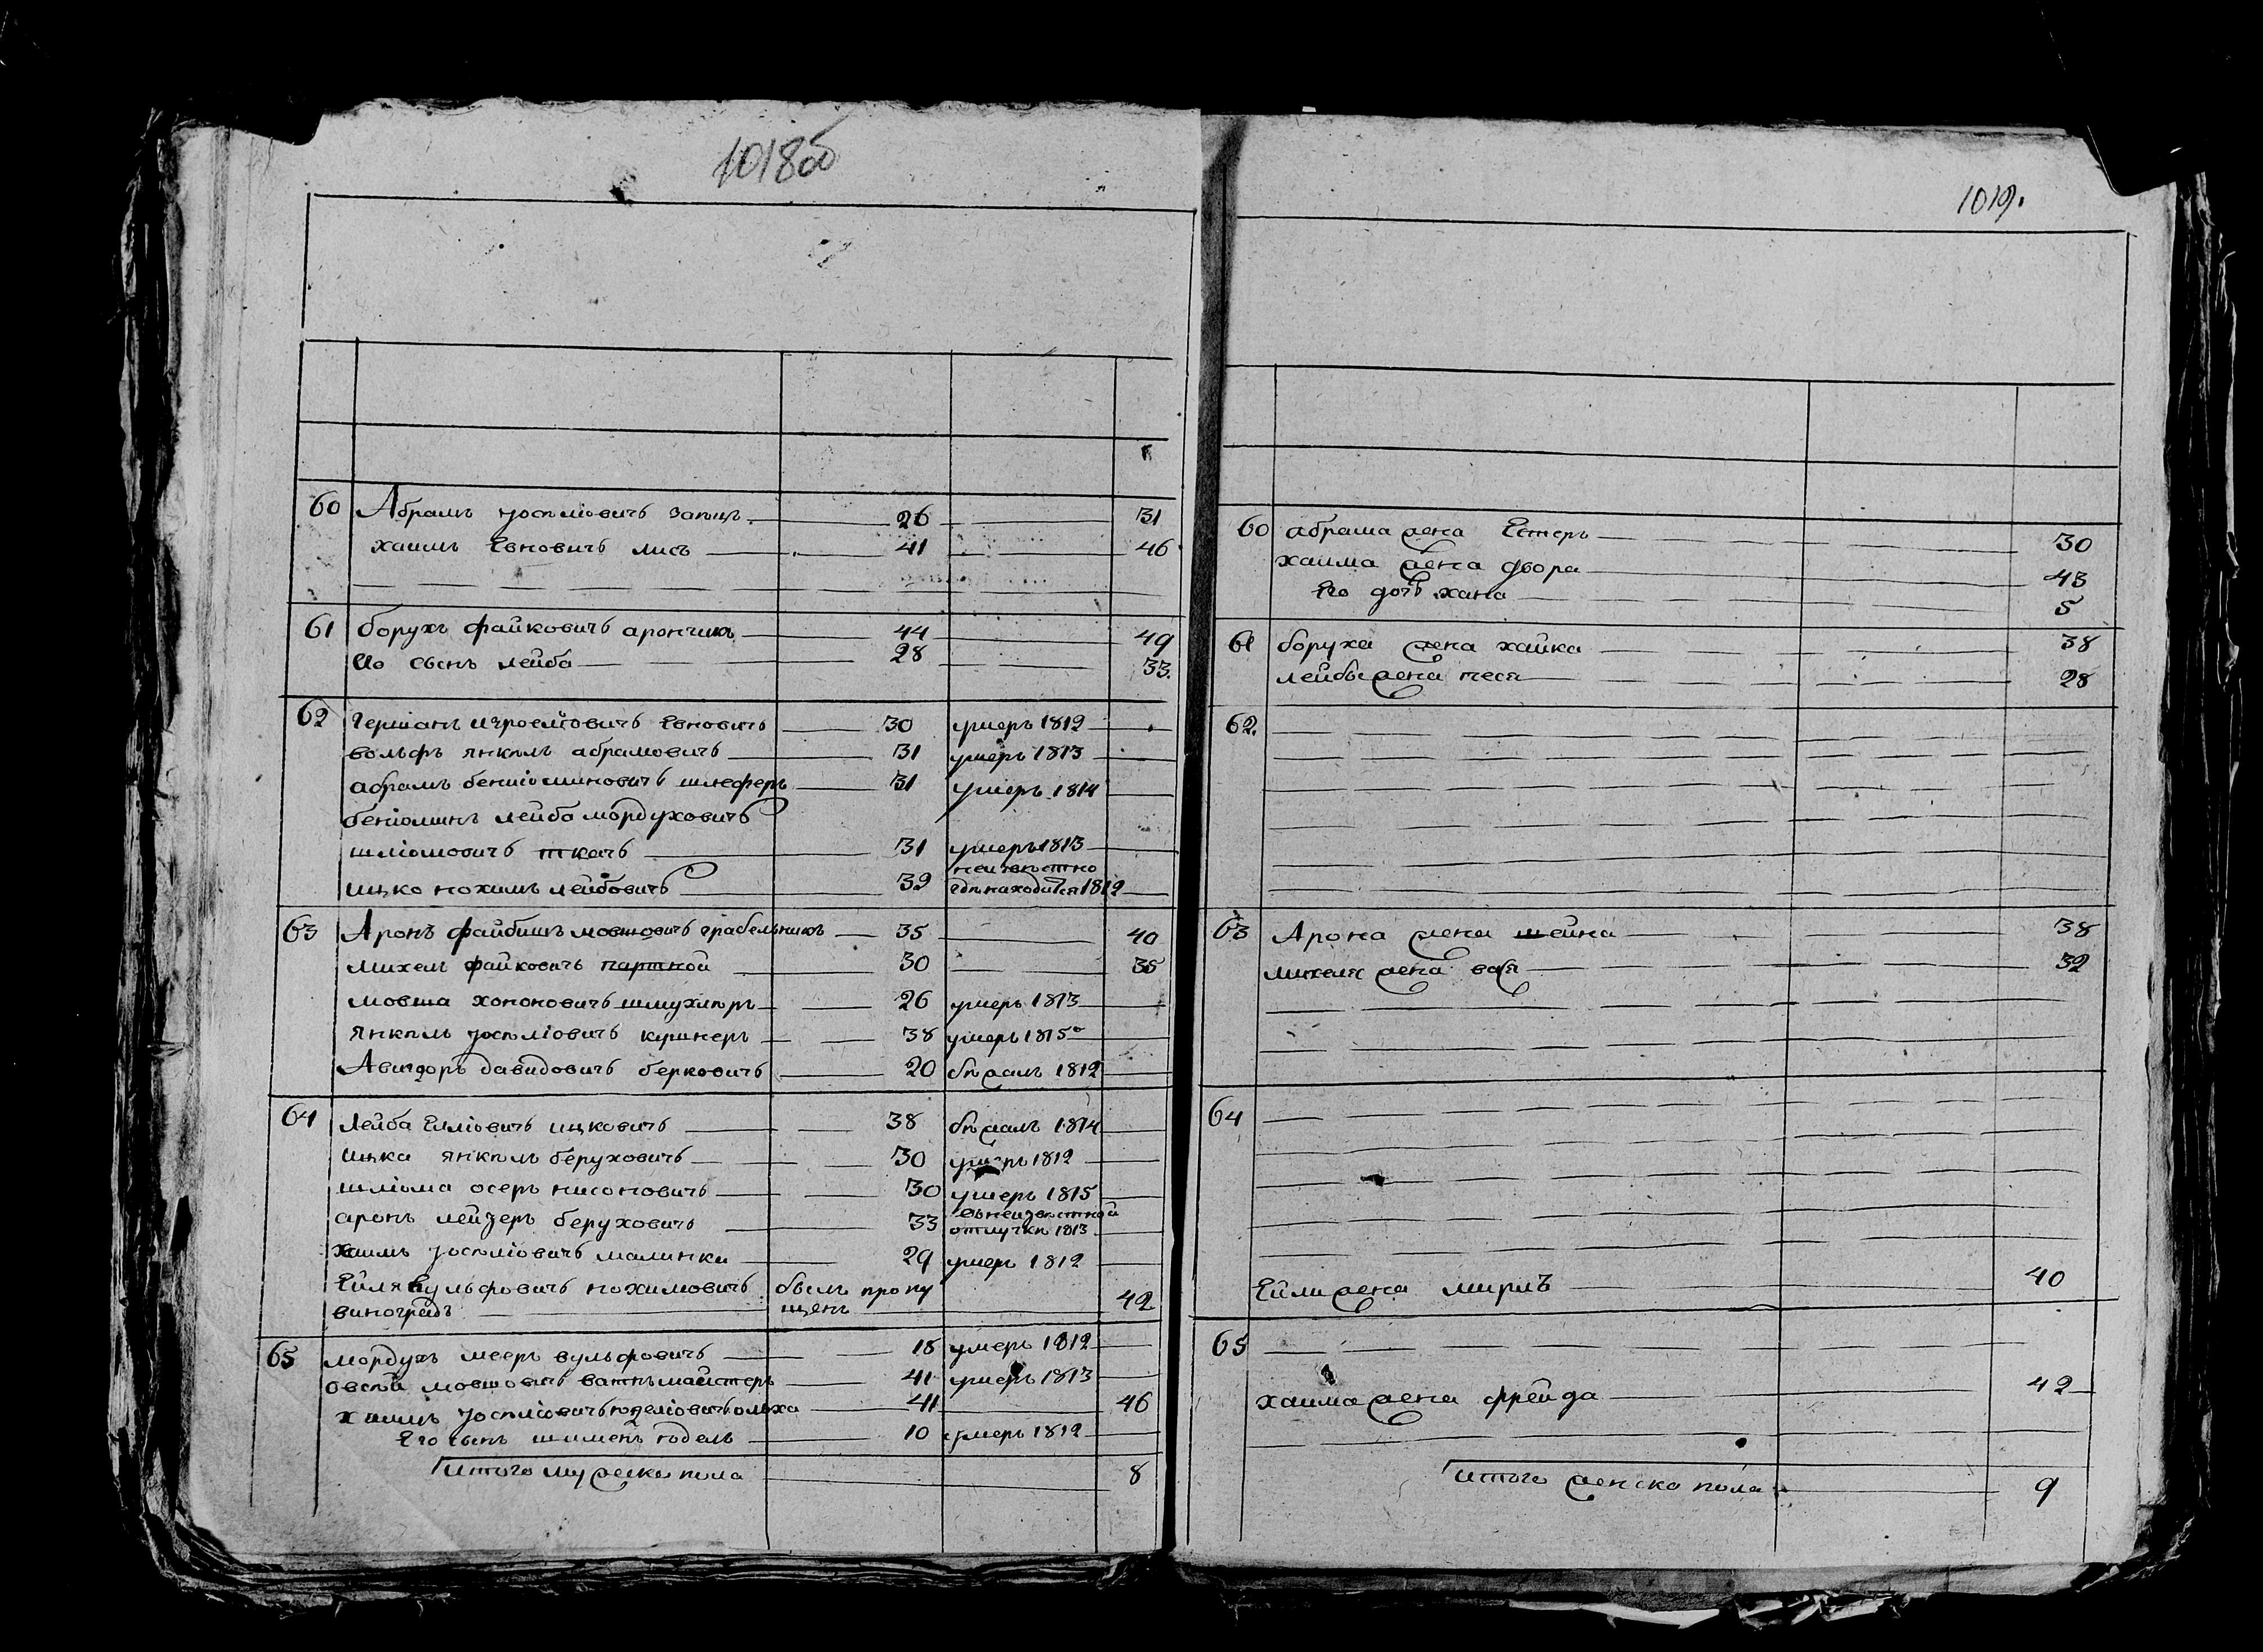 1018об
60 Абрамъ Іоселіовичъ Заіицъ 26 31
хаимъ Евновичъ лисъ 41 46
61 борухъ файковичъ арончикъ 44 49
Его сынъ лейба 28 33.
62 Гершанъ изроелiовичъ Евновичъ 30 умеръ 1812
вольфъ янкель абрамовичъ 31 умеръ 1813
абрамъ бениоминовичъ шлеферъ 31 умеръ 1814
беніоминъ лейба мордуховичъ
шліомовичъ ткачъ 31 умеръ 1813
неизвѣстно
ицко нохимъ лейбовичъ 39 гдѣ находится 1812
63 Аронъ файбишъ мовшовичъ грабельникъ 35 40
михель файковичъ партной 30 35
мовша хононовичъ шмухлеръ 26 умеръ 1813
янкель Іоселіовичъ кушнеръ 38 умеръ 1815
Авигдоръ давидовичъ берковичъ 20 бѣжалъ 1812
64 Лейба Елліовичъ ицковичъ 38 бѣжалъ 1814
ицка янкель беруховичъ 30 умеръ 1812
шліома осеръ нисоновичъ 30 умеръ 1815
аронъ лейзеръ беруховичъ 33 въ неизвѣстной
отлучкѣ 1813
хаимъ Іоселіовичъ малинки 29 умеръ 1812
Ейля вульфовичъ нохимовичъ былъ пропу
виноградъ щенъ 42
65 мордухъ мееръ вульфовичъ 18 умеръ 1812
овсей мовшовичъ ватъмайстеръ 41 умеръ 1813
хаимъ Іоселіовичъ юделіовичъ ольха 41 46
Его сынъ шименъ юдель 10 умеръ 1812
Итого мужеска пола 8
1019.
60 абрама жена Естеръ 30
хаима жена двора 43
Его дочь хана 5
61 боруха жена хайка 38
лейбы жена песя 28
62.
63 Арона жена шейна 38
михеля жена бася 32
64
Ейли жена мирлъ 40
65
хаима жена фрейда 42
Итого женска пола 9